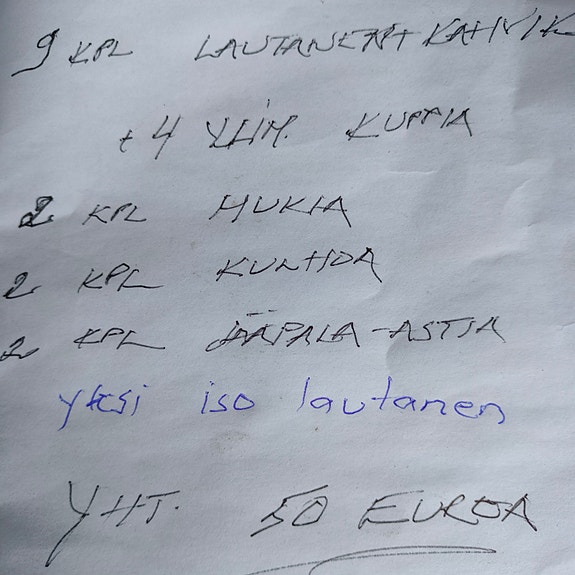 9 KPL LAUTANEN+KAHVIK
+4 YLIM. KUPPIA
2 KPL MUKIA
2 KPL KULHOA
2 KPL JÄÄPALA-ASTIA
yksi iso lautanen
YHT. 50 EUROA